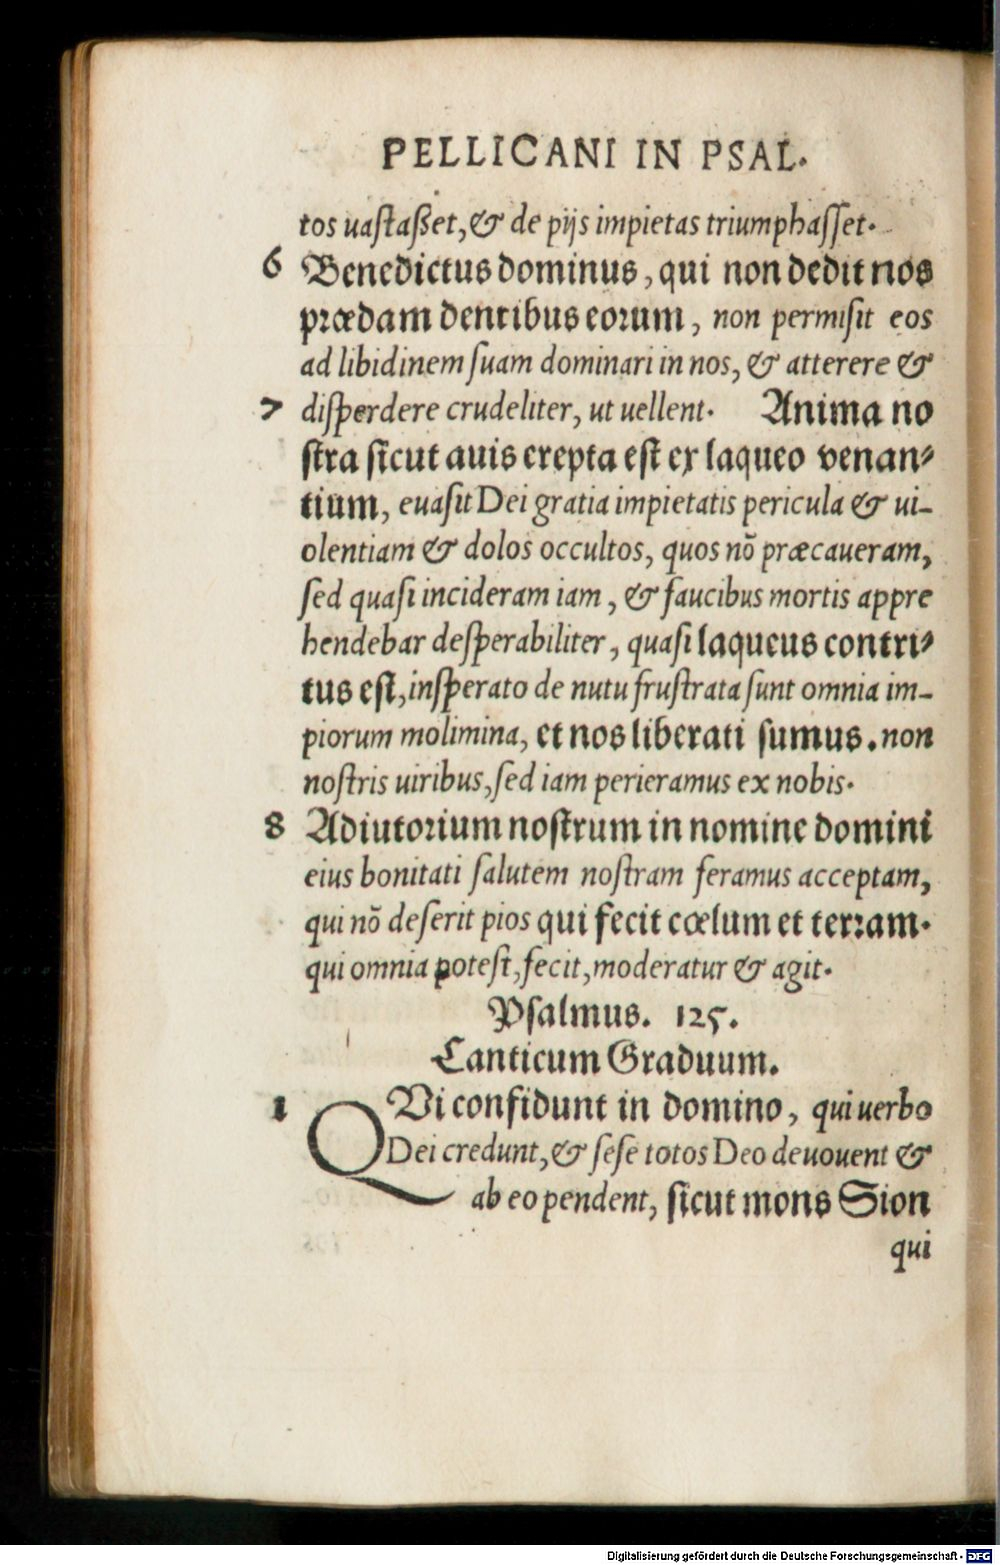 PELLICANI IN PSAL.
tos uaſtaßet, & de pijs impietas triumphaſſet.
6 Benedictus dominus, qui non dedit nos
prædam dentibus eorum, non permiſit eos
ad libidinem ſuam dominari in nos, & atterere &
7 diſperdere crudeliter, ut uellent. Anima no
ſtra ſicut auis erepta eſt ex laqueo venan⸗
tium, euaſit Dei gratia impietatis pericula & ui-
olentiam & dolos occultos, quos nõ præcaueram,
ſed quaſi incideram iam, & faucibus mortis appre
hendebar deſperabiliter, quaſi laqueus contri⸗
tus eſt, inſperato de nutu fruſtrata ſunt omnia im-
piorum molimina, et nos liberati ſumus. non
noſtris uiribus, ſed iam perieramus ex nobis.
8 Adiutorium noſtrum in nomine domini
eius bonitati ſalutem noſtram feramus acceptam,
qui nõ deſerit pios qui fecit cœlum et terram.
qui omnia poteſt, fecit, moderatur & agit.
Pſalmus. 125.
Canticum Graduum.
1 QVi confidunt in domino, qui uerbo
Dei credunt, & ſeſe totos Deo deuouent &
ab eo pendent, ſicut mons Sion
qui
Digitalisierung gefördert durch die Deutsche Forschungsgemeinschaft - DFG